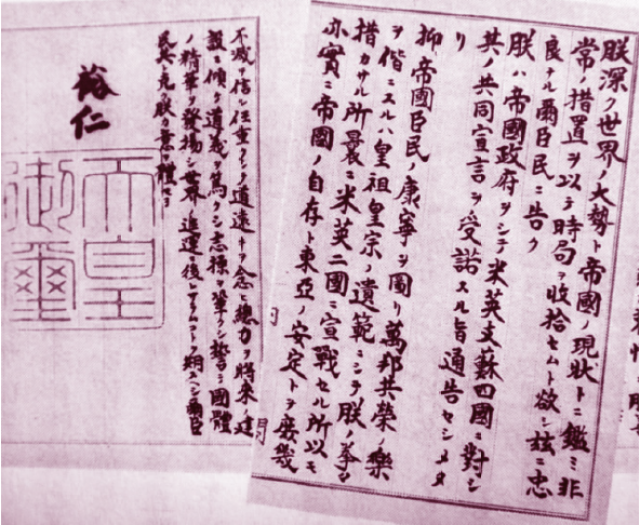 朕深ク世界ノ大勢ト帝國ノ現状トニ鑑ミ非
常ノ措置ヲ以テ時局ヲ收拾セムト欲シ茲ニ忠
良ナル爾臣民ニ告ク
朕ハ帝國政府ヲシテ米英支蘇四國ニ對シ
其ノ共同宣言ヲ受諾スル旨通告セシメタ
リ
抑帝國臣民ノ康寧ヲ圖リ萬邦共榮ノ樂
ヲ偕ニスルハ皇祖皇宗ノ遺範ニシテ朕ノ拳々
措カサル所曩ニ米英二國ニ宣戰セル所以モ
亦實ニ帝國ノ自存ト東亞ノ安定トヲ庶幾
不滅ヲ信シ任重クシテ道遠キヲ念ヒ總力ヲ將來ノ建
設ニ傾ケ道義ヲ篤クシ志操ヲ鞏クシ誓テ國體
ノ精華ヲ發揚シ世界ノ進運ニ後レサラムコトヲ期スヘシ爾臣
民其レ克ク朕カ意ヲ體セヨ
裕仁
天皇
御璽